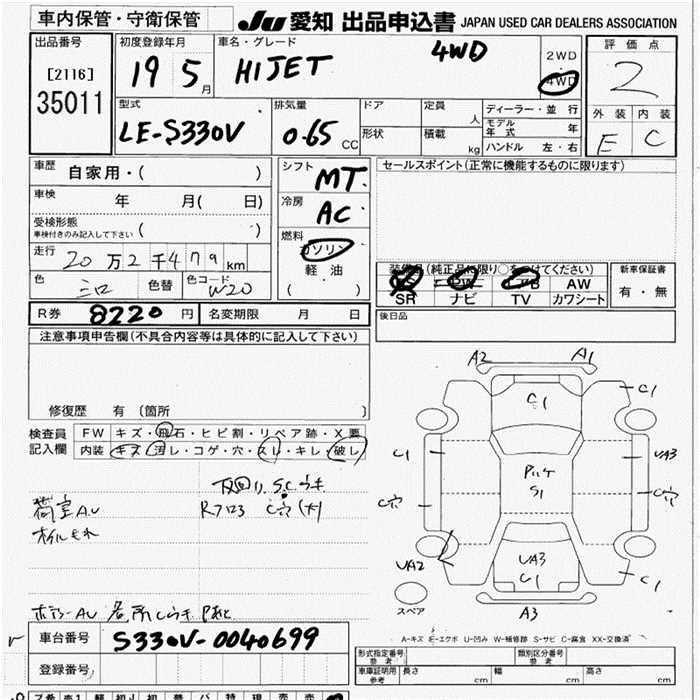 車内保管・守衛保管
JU 愛知 出品申込書 JAPAN USED CAR DEALERS ASSOCIATION
出品番号
[2116]
35011
初度登録年月
19 5 月
車名・グレード
HIJET
4WD
2WD
・
4WD
評価点
2
外装 内装
E C
型式
LE-S330V
排気量
0.65 CC
ドア
形状
定員
人
積載
kg
ディーラー・並行
モデル年式 年
ハンドル 左・右
車歴 自家用・( )
車検 年 月( 日)
受検形態
車検付きのみ記入して下さい ( )
走行 20万2千479km
色 シロ 色替 色コード W20
シフト
MT
冷房
AC
燃料
ガソリン
軽油
( ・ )
セールスポイント(正常に機能するものに限ります)
装備品(純正品に限り○をつけてください)
AW
SR ナビ TV カワシート
新車保証書
有・無
後日品
R券 8220 円 名変期限 月 日
注意事項申告欄(不具合内容等は具体的に記入して下さい)
修復歴 有 〔箇所 〕
検査員
記入欄
FW キズ・飛石・ヒビ割・リペア跡・X要
内装 キズ・汚レ・コゲ・穴・スレ・キレ・破レ
荷室AU
オイルもれ
A2 A1
C1 C1
C1 UA3
C穴 C穴
S1
UA2
UA3
C1
C1
スペア
A3
A-キズ E-エクボ U-凹み W-補修跡 S-サビ C-腐食 XX-交換済
車台番号 S330V-0040699
登録番号
形式指定番号
参考
類別区分番号
参考
車庫証明用
参考
長さ cm 幅 cm 高さ cm